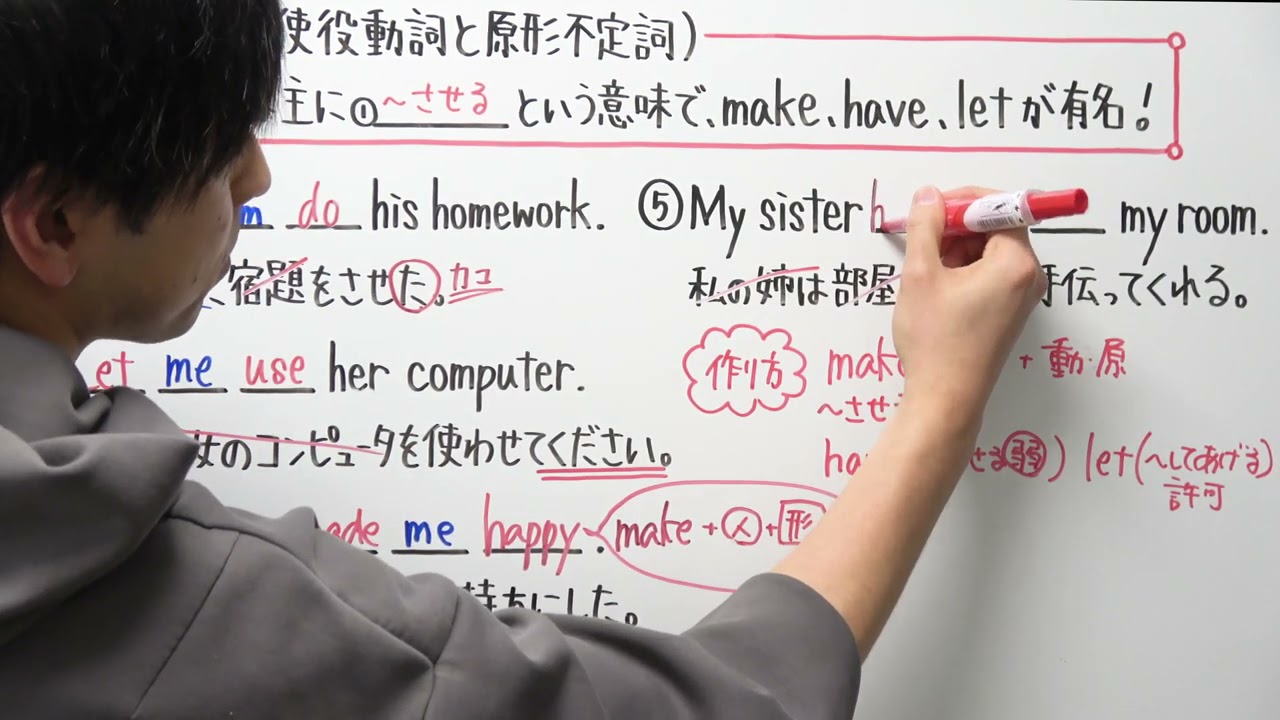 使役動詞と原形不定詞)
主に①~させる という意味で、make、have、letが有名!
m do his homework.
宿題をさせた。カコ
et me use her computer.
女のコンピュータを使わせてください。
ade me happy. make+人+形
持ちにした。
⑤My sister h my room.
私の姉は部屋 手伝ってくれる。
作り方 make +動・原
~させ
ha させる弱) let(~してあげる)
許可